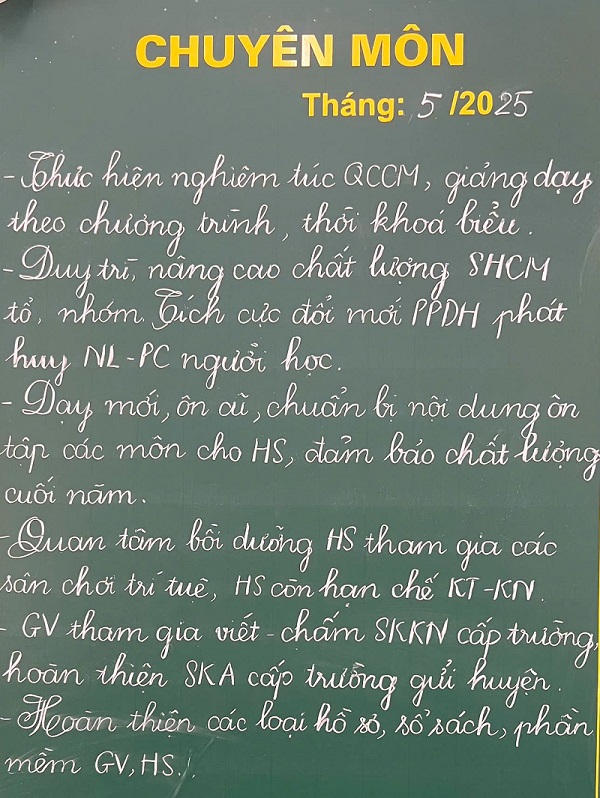 CHUYÊN MÔN
Tháng: 5 /2025
- Thực hiện nghiêm túc QCCM, giảng dạy
theo chương trình, thời khoá biểu.
- Duy trì, nâng cao chất lượng SHCM
tổ, nhóm. Tích cực đổi mới PPDH phát
huy NL-PC người học.
- Dạy mới, ôn cũ, chuẩn bị nội dung ôn
tập các môn cho HS, đảm bảo chất lượng
cuối năm.
- Quan tâm bồi dưỡng HS tham gia các
sân chơi trí tuệ, HS còn hạn chế KT-KN.
- GV tham gia viết - chấm SKKN cấp trường,
hoàn thiện SKA cấp trường gửi huyện.
- Hoàn thiện các loại hồ sơ, sổ sách, phần
mềm GV, HS./.